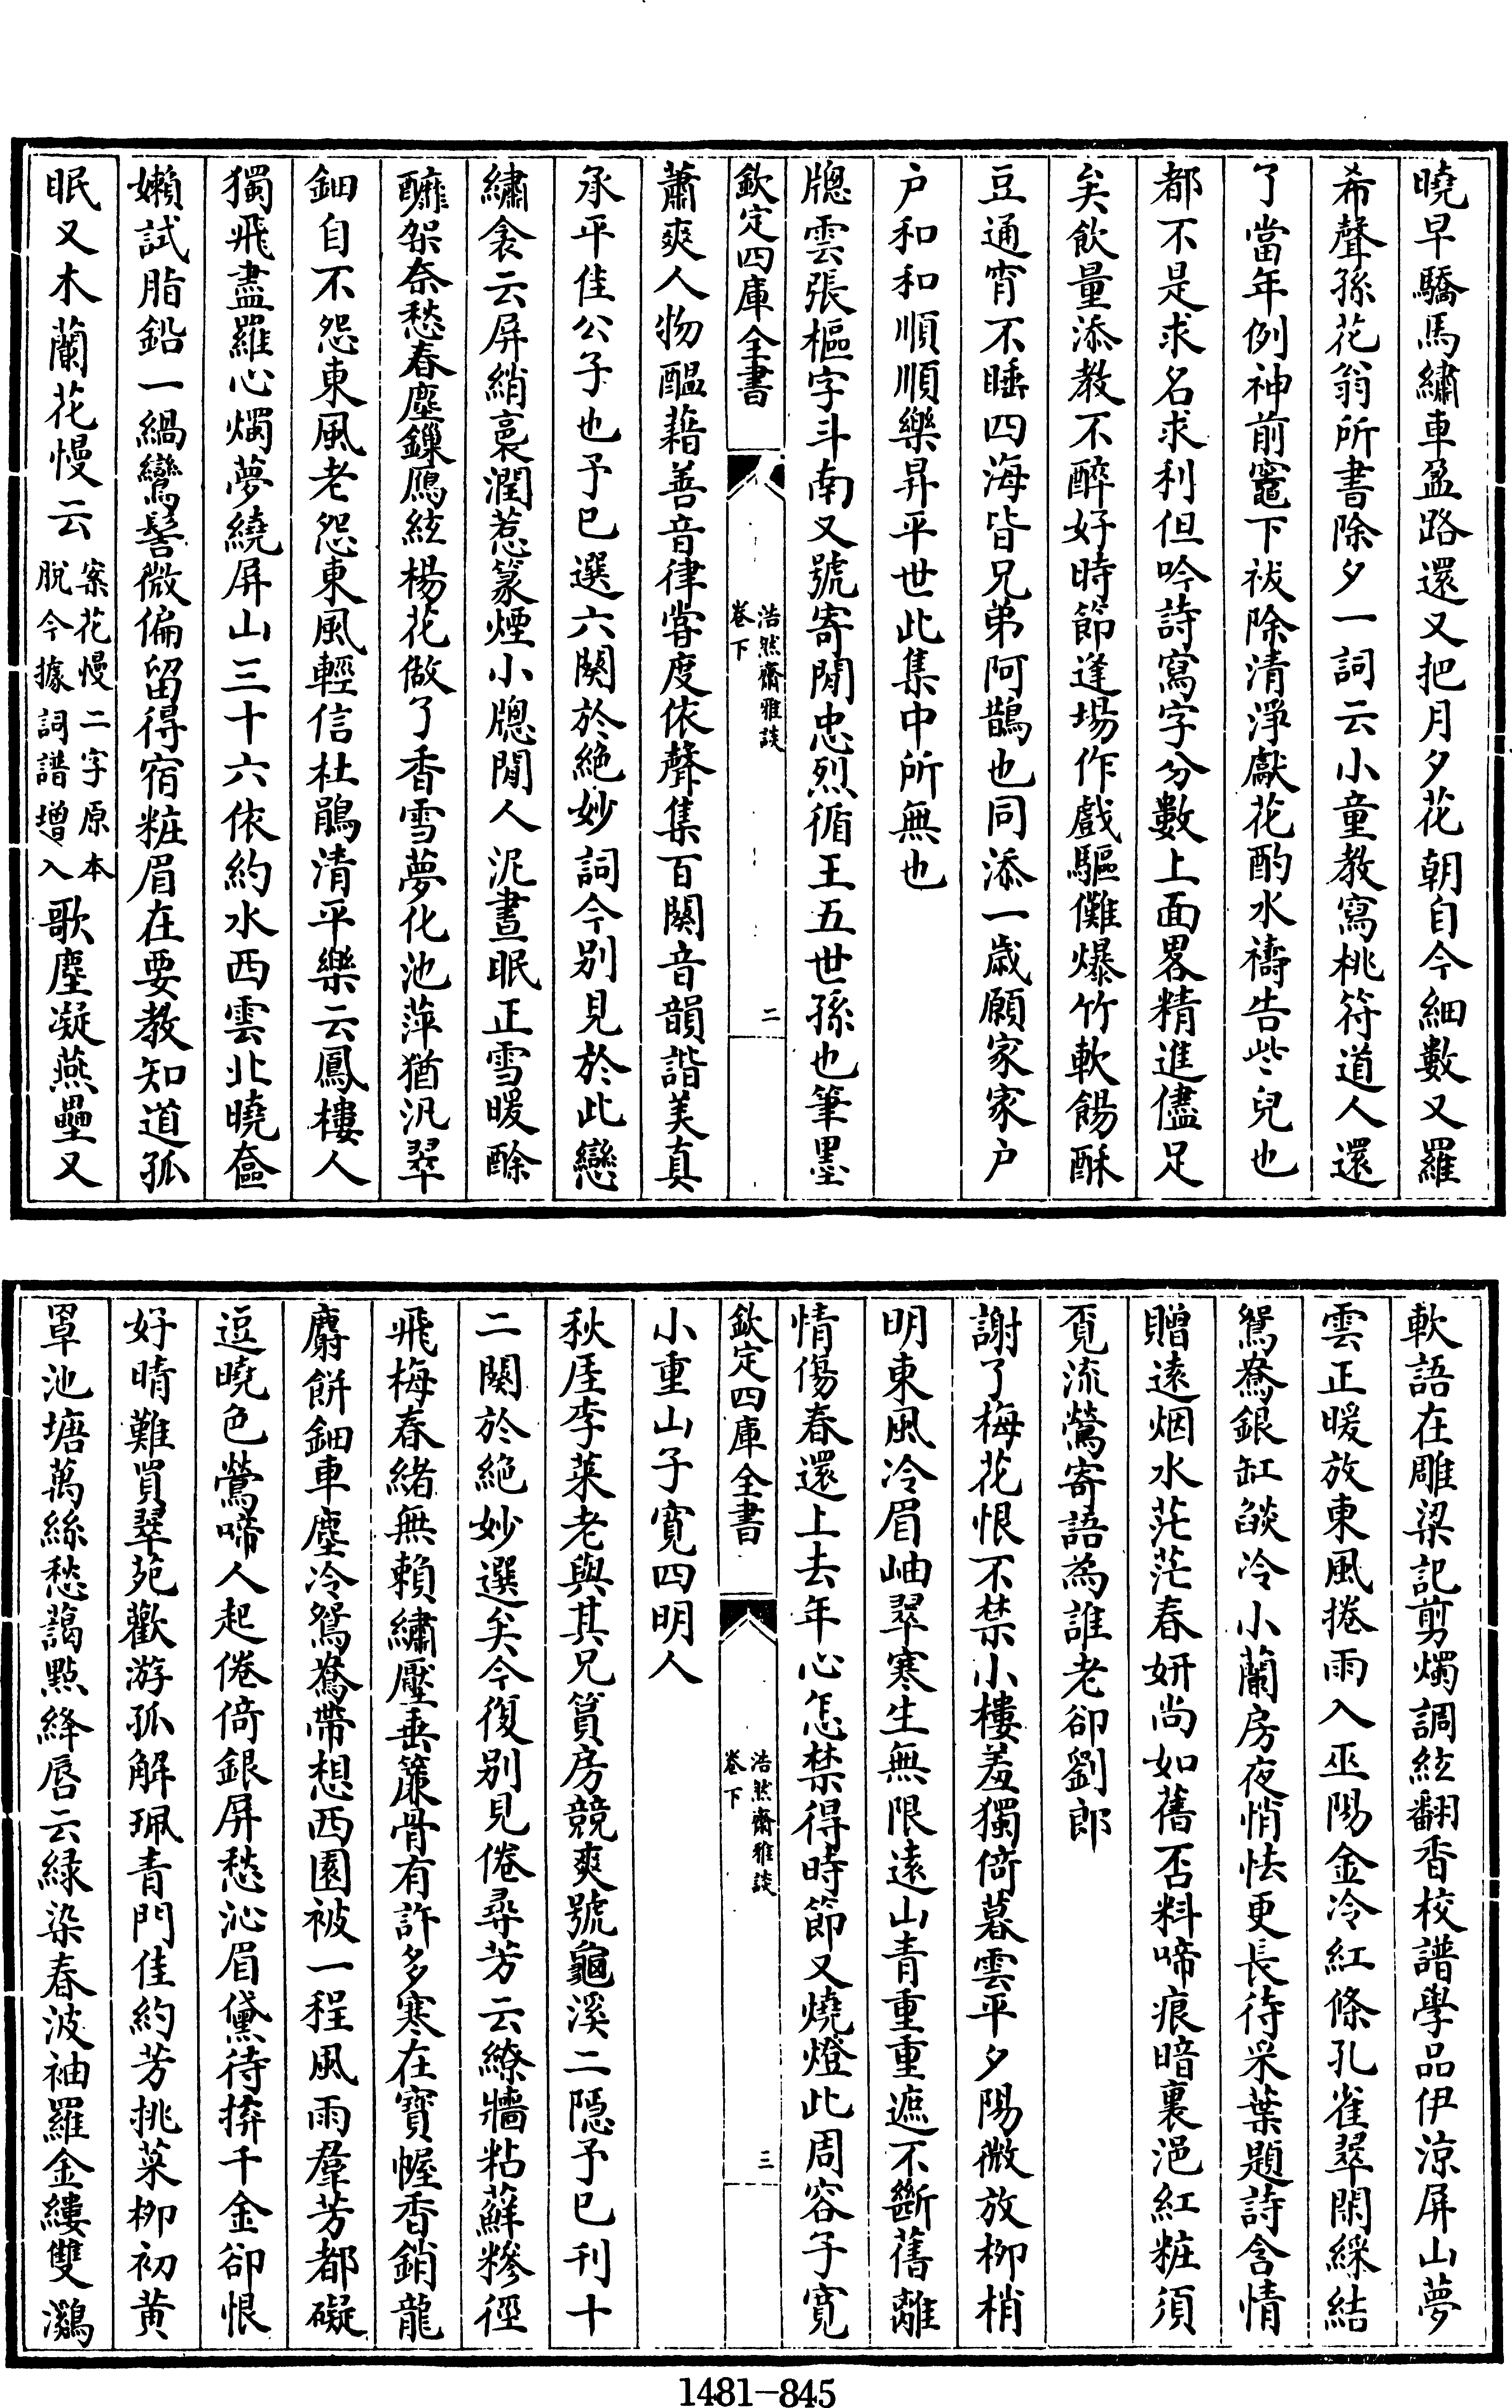 曉早驕馬繡車盈路還又把月夕花朝自今細數又羅
希聲孫花翁所書除夕一詞云小童教寫桃符道人還
了當年例神前竈下祓除清淨獻花酌水禱告些兒也
都不是求名求利但吟詩寫字分數上面畧精進儘足
矣飲量添教不醉好時節逢場作戲驅儺爆竹軟餳酥
豆通宵不睡四海皆兄弟阿鵲也同添一歲願家家户
户和和順順樂昇平世此集中所無也
牕雲張樞字斗南又號寄閒忠烈循王五世孫也筆墨
欽定四庫全書
浩然齋雅談
卷下
二
蕭爽人物醖藉善音律嘗度依聲集百闋音韻諧美真
承平佳公子也予已選六闋於絶妙詞今别見於此戀
繡衾云屏綃裛潤惹篆煙小牕閒人泥晝眠正雪暖酴
醿架奈愁春塵鏁鴈絃楊花做了香雪夢化池萍猶汎翠
鈿自不怨東風老怨東風輕信杜鵑清平樂云鳳樓人
獨飛盡羅心燭夢繞屏山三十六依約水西雲北曉奩
嬾試脂鉛一緺鸞髻微偏留得宿粧眉在要教知道孤
眠又木蘭花慢云
案花慢二字原本
脫今據詞譜増入
歌塵凝燕壘又
軟語在雕梁記剪燭調絃翻香校譜學品伊涼屏山夢
雲正暖放東風捲雨入巫陽金冷紅條孔雀翠閑綵結
鴛鴦銀缸燄冷小蘭房夜悄怯更長待采葉題詩含情
贈遠烟水茫茫春妍尚如舊否料啼痕暗裏浥紅粧須
覓流鶯寄語為誰老卻劉郎
謝了梅花恨不禁小樓羞獨倚暮雲平夕陽微放柳梢
明東風冷眉岫翠寒生無限遠山青重重遮不斷舊離
情傷春還上去年心怎禁得時節又燒燈此周容子寛
欽定四庫全書
浩然齋雅談
卷下
三
小重山子寛四明人
秋厓李萊老與其兄篔房競爽號龜溪二隱予已刊十
二闋於絶妙選矣今復别見倦尋芳云繚牆粘蘚糝徑
飛梅春緒無賴繡壓垂簾骨有許多寒在寶幄香銷龍
麝餅鈿車塵冷鴛鴦帶想西園被一程風雨羣芳都礙
逗曉色鶯啼人起倦倚銀屏愁沁眉黛待拚千金卻恨
好晴難買翠苑歡游孤解珮青門佳約芳挑菜柳初黄
罩池塘萬絲愁藹點絳唇云緑染春波袖羅金縷雙鸂
1481—845